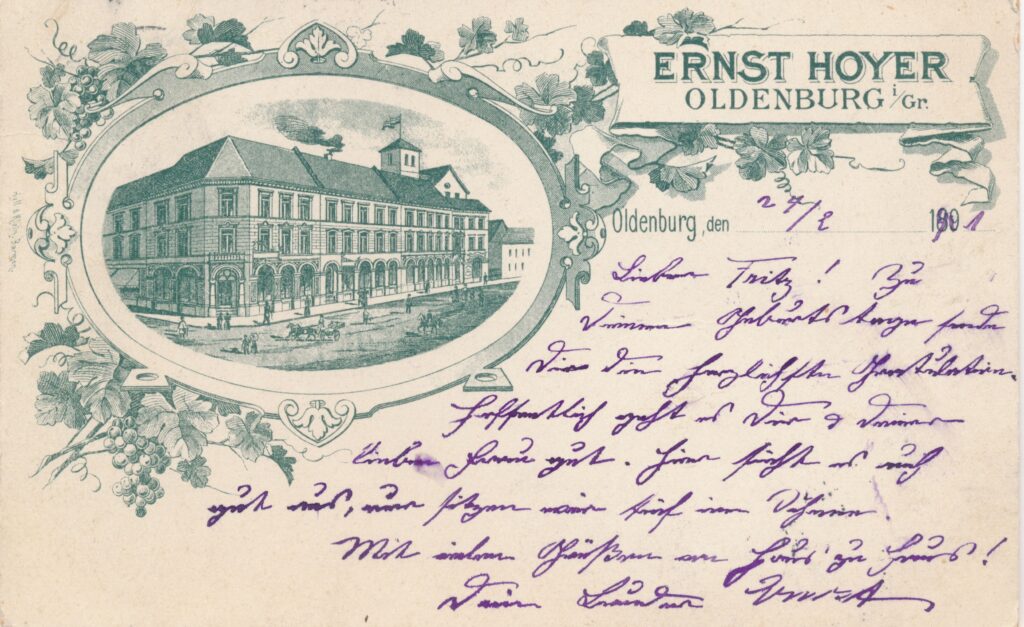 ERNST HOYER
OLDENBURG i/Gr.
Oldenburg, den 24/2 1901
Lieber Fritz! Zu
Deinem Geburtstage sende
Dir die herzlichsten Gratulation.
Hoffentlich geht es Dir & Deiner
lieben Frau gut. Hier sieht es auch
gut aus, nur sitzen wir tief im Schnee.
Mit vielen Grüßen von Haus zu Haus!
Dein Bruder Ernst